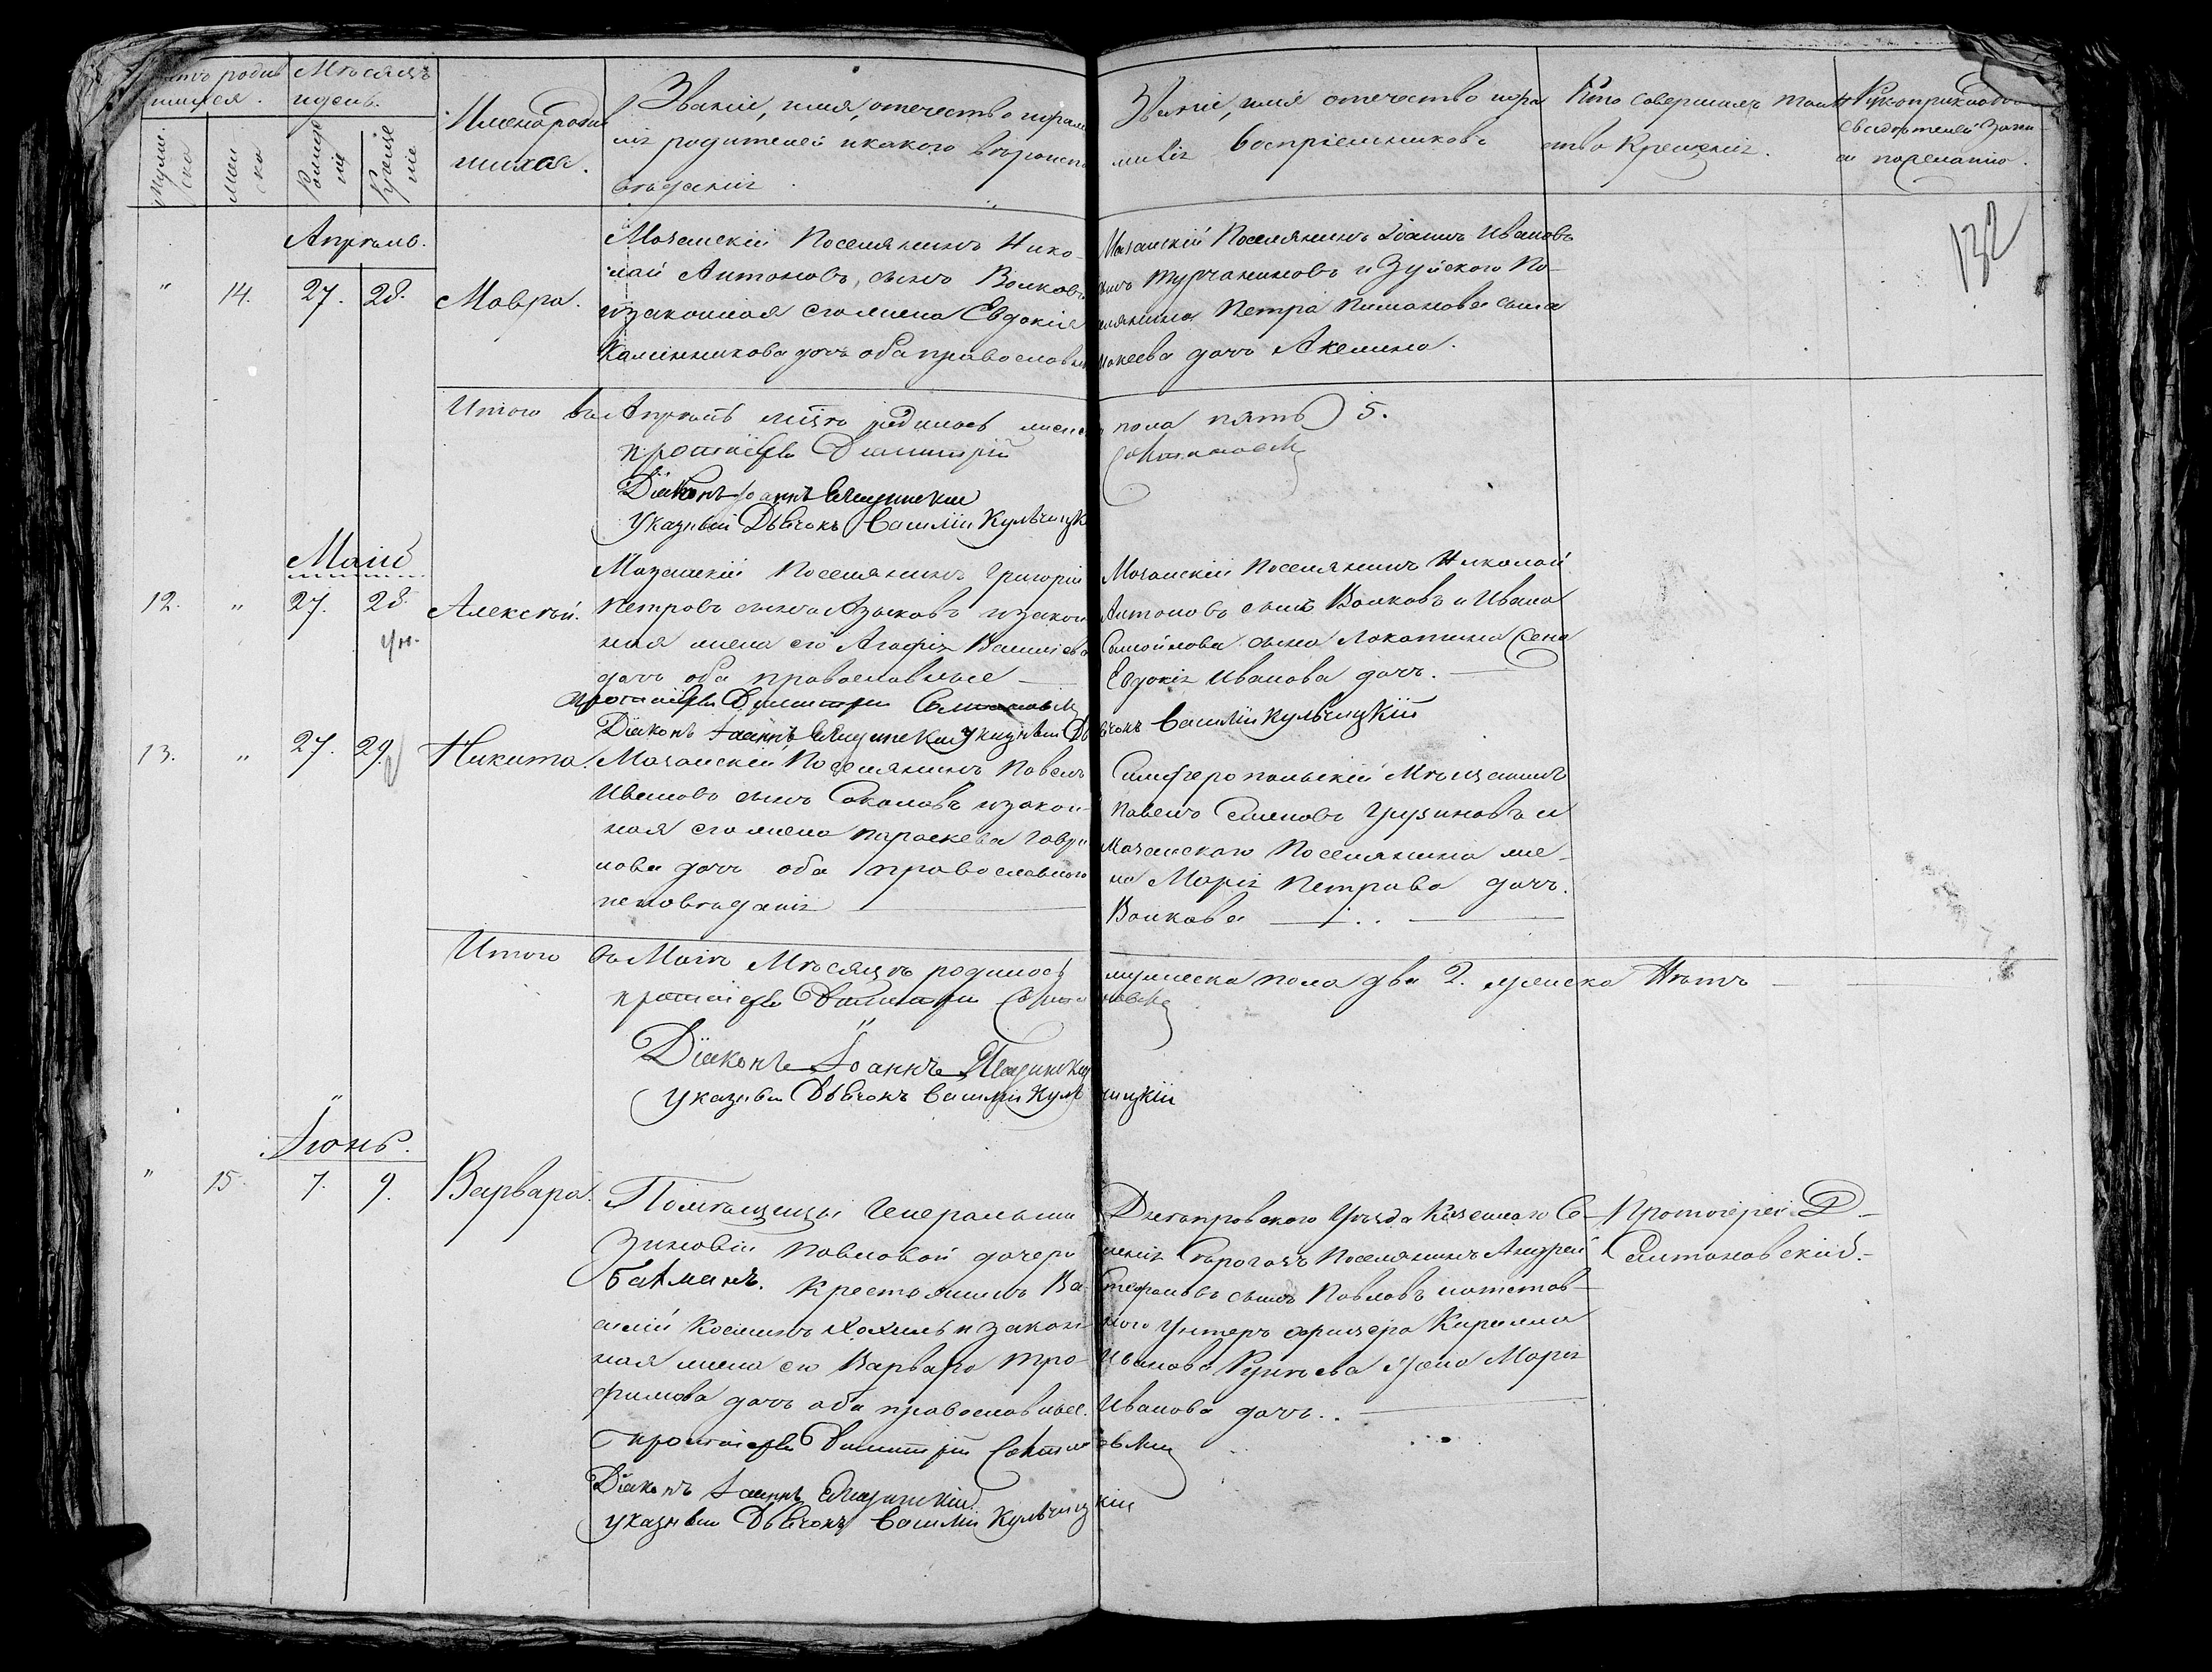 родив
шихся.
Мѣсяцъ
и день.
Имена родив
шихся.
Званіе, имя, отечество и фами
лія родителей и какого вѣроиспо
вѣданія
Званіе, имя отечество и фа
милія воспріемниковъ
Кто совершалъ таин
ство Крещенія.
Рукоприкладство
свидѣтелей запи
си по желанію.
Муже
ска
Жен
ска
Рожде
нія
Креще
ніе
132
Апрѣль.
" 14. 27. 28. Мавра.
Мазанскій Поселянинъ Нико-
лай Антоновъ, сынъ Волковъ
и законная его жена Евдокія
Калинникова дочь оба православн
Мазанскій Поселянинъ Іоаннъ Ивановъ
сынъ Турчаниновъ и Зуйского По-
селянина Петра Пиманова сына
Мокеева дочь Акелина.
Итого въ Апрѣлѣ мѣцѣ родилось женск
пола пять 5.
протоіерей Димитрій
Діаконъ Іоаннъ
Указный Дьячокъ Василій Кульчицк
Маій
12. " 27. 28. Алексѣй.
ум.
Мазанскій Поселянинъ Григорій
Петровъ сынъ Азыковъ и закон
ная жена его Агафія Васильева
дочь оба православные
Мазанскій Поселянинъ Николай
Антоновъ сынъ Волковъ и Ивана
Самойлова сына Локотина Сена
Евдокія Иванова дочь.
протоіерей Димитрій
Діаконъ Іоаннъ Указный Дьячокъ Василій Кульчицкій
13. " 27. 29. Никита.
Мазанскій Поселянинъ Павелъ
Ивановъ сынъ Соколовъ и закон-
ная его жена Параскева Гаври
лова дочь оба православного
исповѣданія
Симферопольскій Мѣщанинъ
Павелъ Семеновъ Грузиновъ и
Мазанского Поселянина же-
на Марія Петрова дочь.
Волкова
Итого въ Маіѣ Мѣсяцѣ родилось
мужеска пола два 2. женска Нѣтъ
протоіерей Димитрій
Діаконъ Іоаннъ
Указный Дьячокъ Василій Куль
чицкій
Іюнь.
" 15. 7. 9. Варвара.
Помѣщицы Генеральши
Зиновіи Павловой дочери
Батманъ. Крестьянинъ Ва
силій Косминъ Хохилъ и закон
ная жена его Варвара Тро-
фимова дочь оба православные.
Днѣпровского Уѣзда Казенного Се-
ленія Горогомъ Поселянинъ Андрей
Стефановъ сынъ Павловъ и отстав-
ного Унтеръ офицера Кирилла
Иванова Рунтева Жена Марія
Иванова дочь.
Протоіерей Д-
Салтановскій.
протоіерей Димитрій
Діаконъ Іоаннъ
Указный Дьячокъ Василій Кульчиц
кій